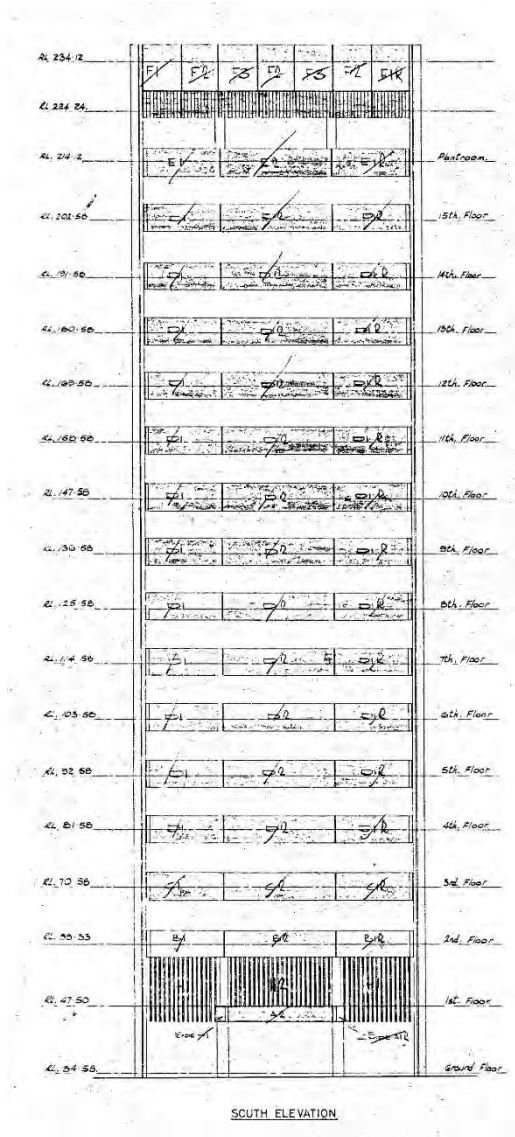 RL. 234·12
F1 F2 F3 F2 F3 F2 F1R
RL. 224·24
RL. 214·12 E1 E2 E1R Plantroom
RL. 202·58 D1 D2 D1R 15th. Floor
RL. 191·58 D1 D2 D1R 14th. Floor
RL. 180·58 D1 D2 D1R 13th. Floor
RL. 169·58 D1 D2 D1R 12th. Floor
RL. 158·58 D1 D2 D1R 11th. Floor
RL. 147·58 D1 D2 D1R 10th. Floor
RL. 136·58 D1 D2 D1R 9th. Floor
RL. 125·58 D1 D2 D1R 8th. Floor
RL. 114·58 D2 D1R 7th. Floor
RL. 103·58 D1 D2 D1R 6th. Floor
RL. 92·58 D1 D2 D1R 5th. Floor
RL. 81·58 D1 D2 D1R 4th. Floor
RL. 70·58 C1 C2 C1R 3rd. Floor
B1 B2 B1R 2nd. Floor
RL. 47·50 1st. Floor
A2
SIDE SIDE
RL. 34·58 Ground Floor
SOUTH ELEVATION